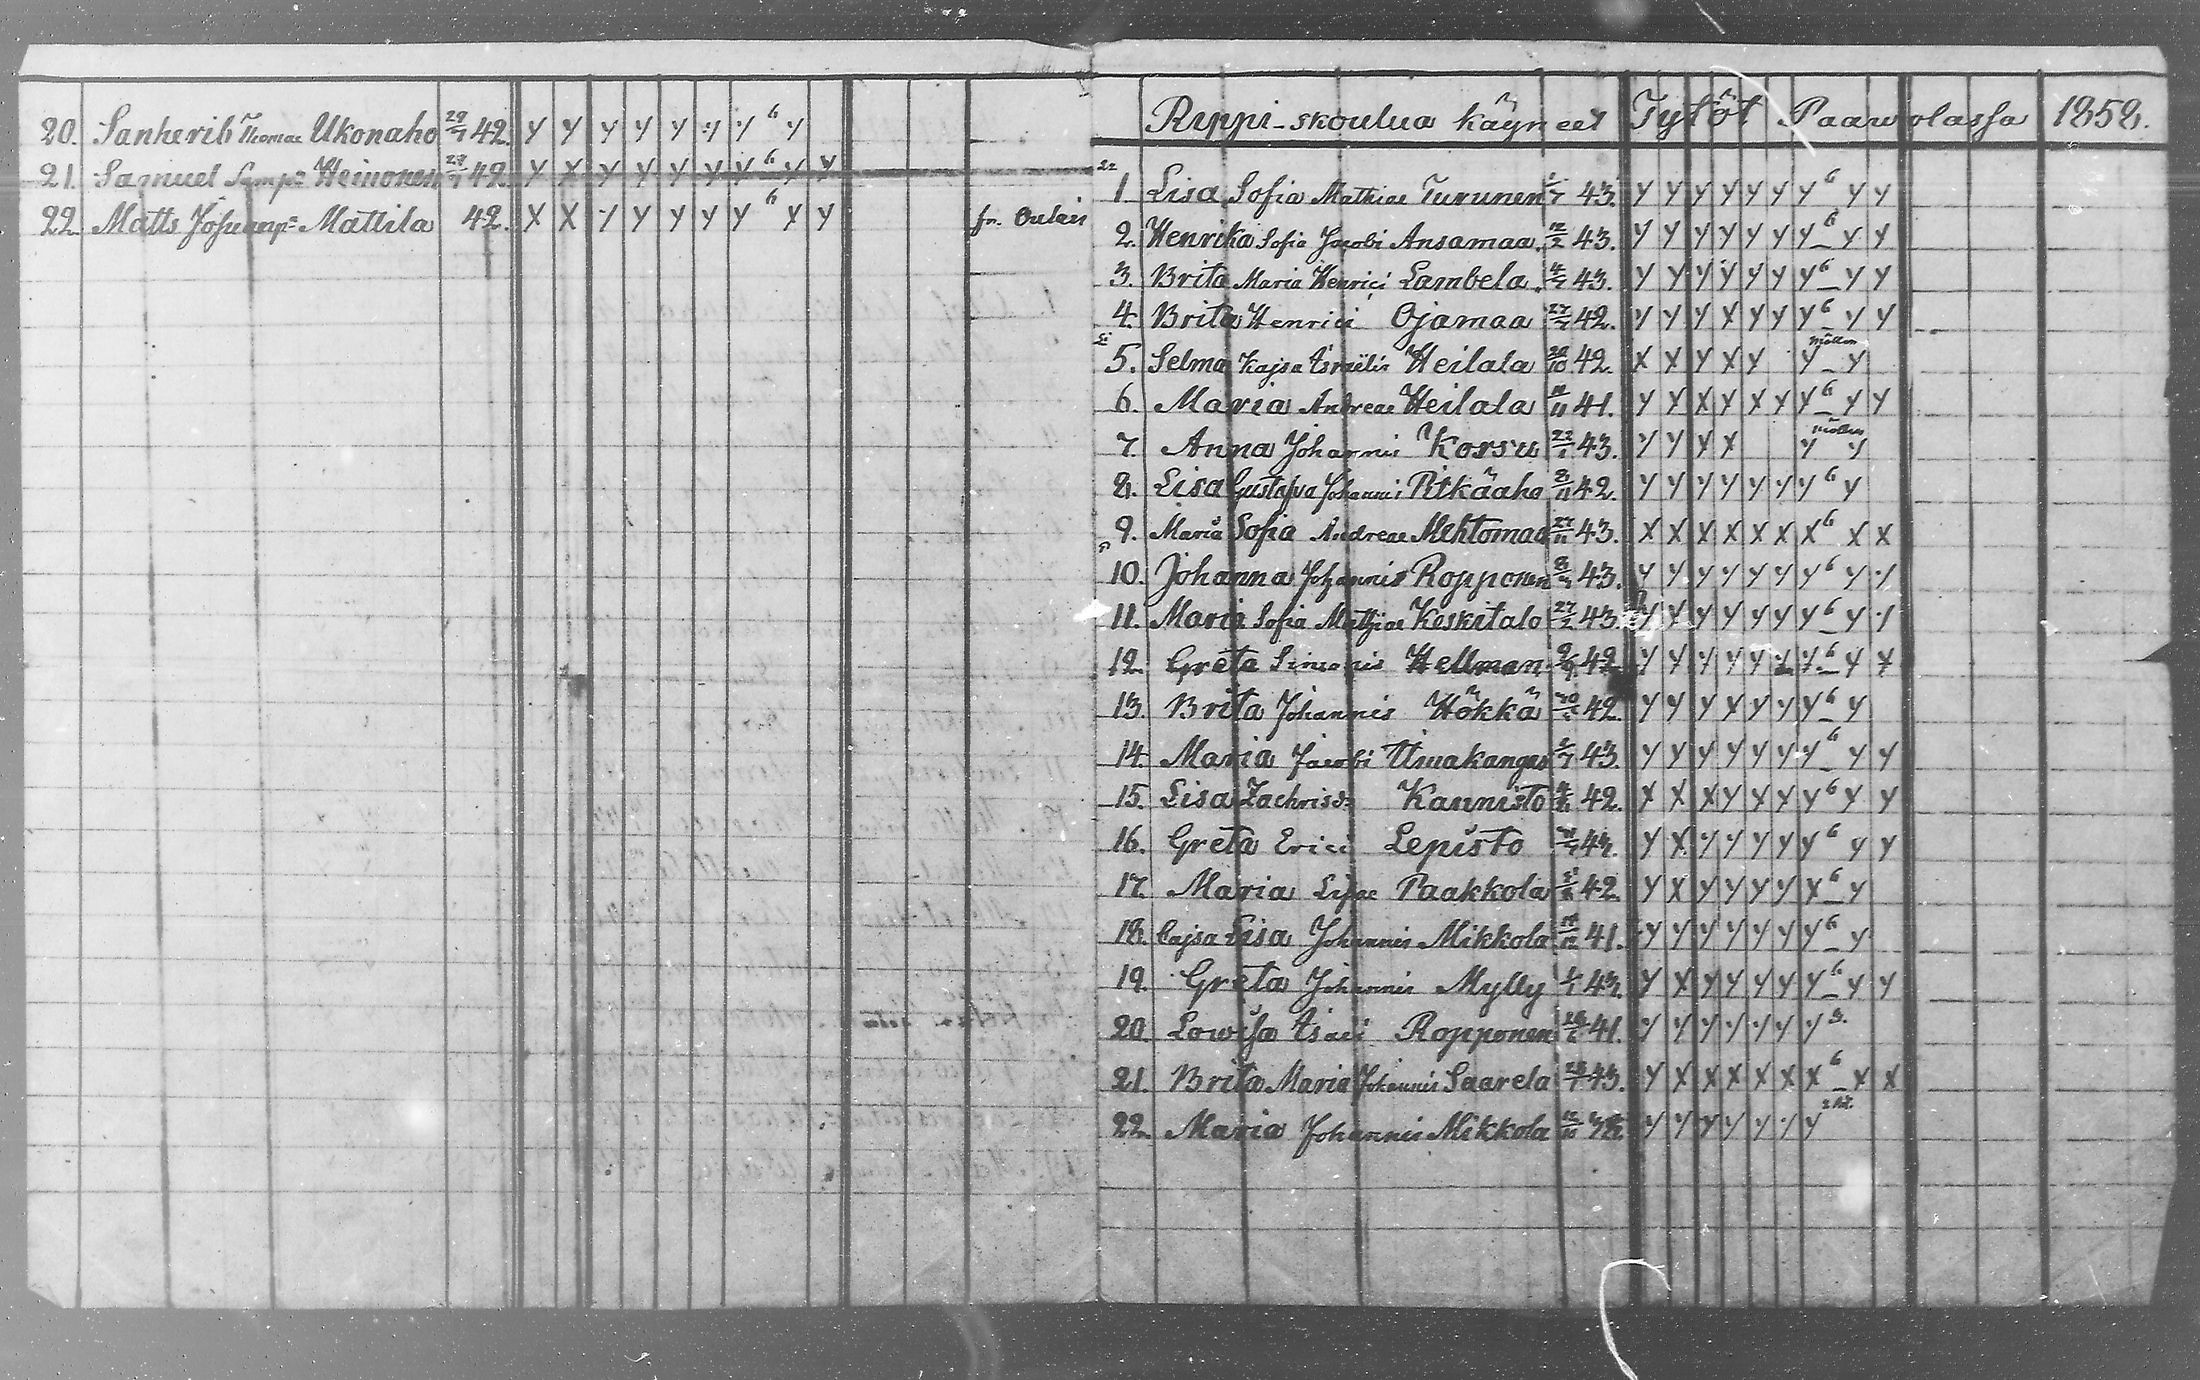 20. Sanherib Thomae Ukonaho 42. y y y y y y y 6 y
21. Samuel Samps Heinonen 42. y x y y y y y 6 y y
22. Matts Johanps Mattila 42. x x y y y y y 6 x y fr. Oulais
Rippi-skoulua käyneet Tytöt Paawolassa 1858.
1. Lisa Sofia Mathiae Turunen 43. y y y y y y y 6 y y
2. Henrika Sofia Jacobi Ansamaa 12/2 43. y y y y y y y 6 y y
3. Brita Maria Henrici Lambela 43. y y y y y y y 6 y y
4. Brita Henrici Ojamaa 42. y y y x y y y 6 y y
5. Selma Kajsa Israëlis Heilala 42. x x y x y y y
6. Maria Andreae Heilala 41. y y x y x y y 6 y y
7. Anna Johannis Korsu 43. y y x x y y
8. Lisa Gustafva Johannis Pitkäaho 8/11 42. y y y y y y y 6 y
9. Maria Sofia Andreae Mehtomaa 43. x x x x x x x 6 x x
10. Johanna Johannis Ropponen 43. y y y y y y y 6 y y
11. Maria Sofia Mathiae Keskitalo 27/2 43. y y y y y y y 6 y y
12. Greta Simonis Hellman 42. y y y y y y y 6 y y
13. Brita Johannis Hökkä 42. y y y x y y y 6 y
14. Maria Jacobi 43. y y y y y y y 6 y y
15. Lisa Zachrisdr Kannisto 42. x x x y x y y 6 y y
16. Greta Erici Lepisto 43. y x y y y y y 6 y y
17. Maria Paakkola 42. y x y y y y x 6 y
18. Cajsa Lisa Johannis Mikkola 41. y y y y y y y 6 y
19. Greta Johannis Mylly 43. y x y y y y y 6 y y
20. Lowisa Isaci Ropponen 41. y y y y y y y 3.
21. Brita Maria Johannis Saarela 43. y x x x x x x 6 x x
22. Maria Johannis Mikkola y y y y y y y